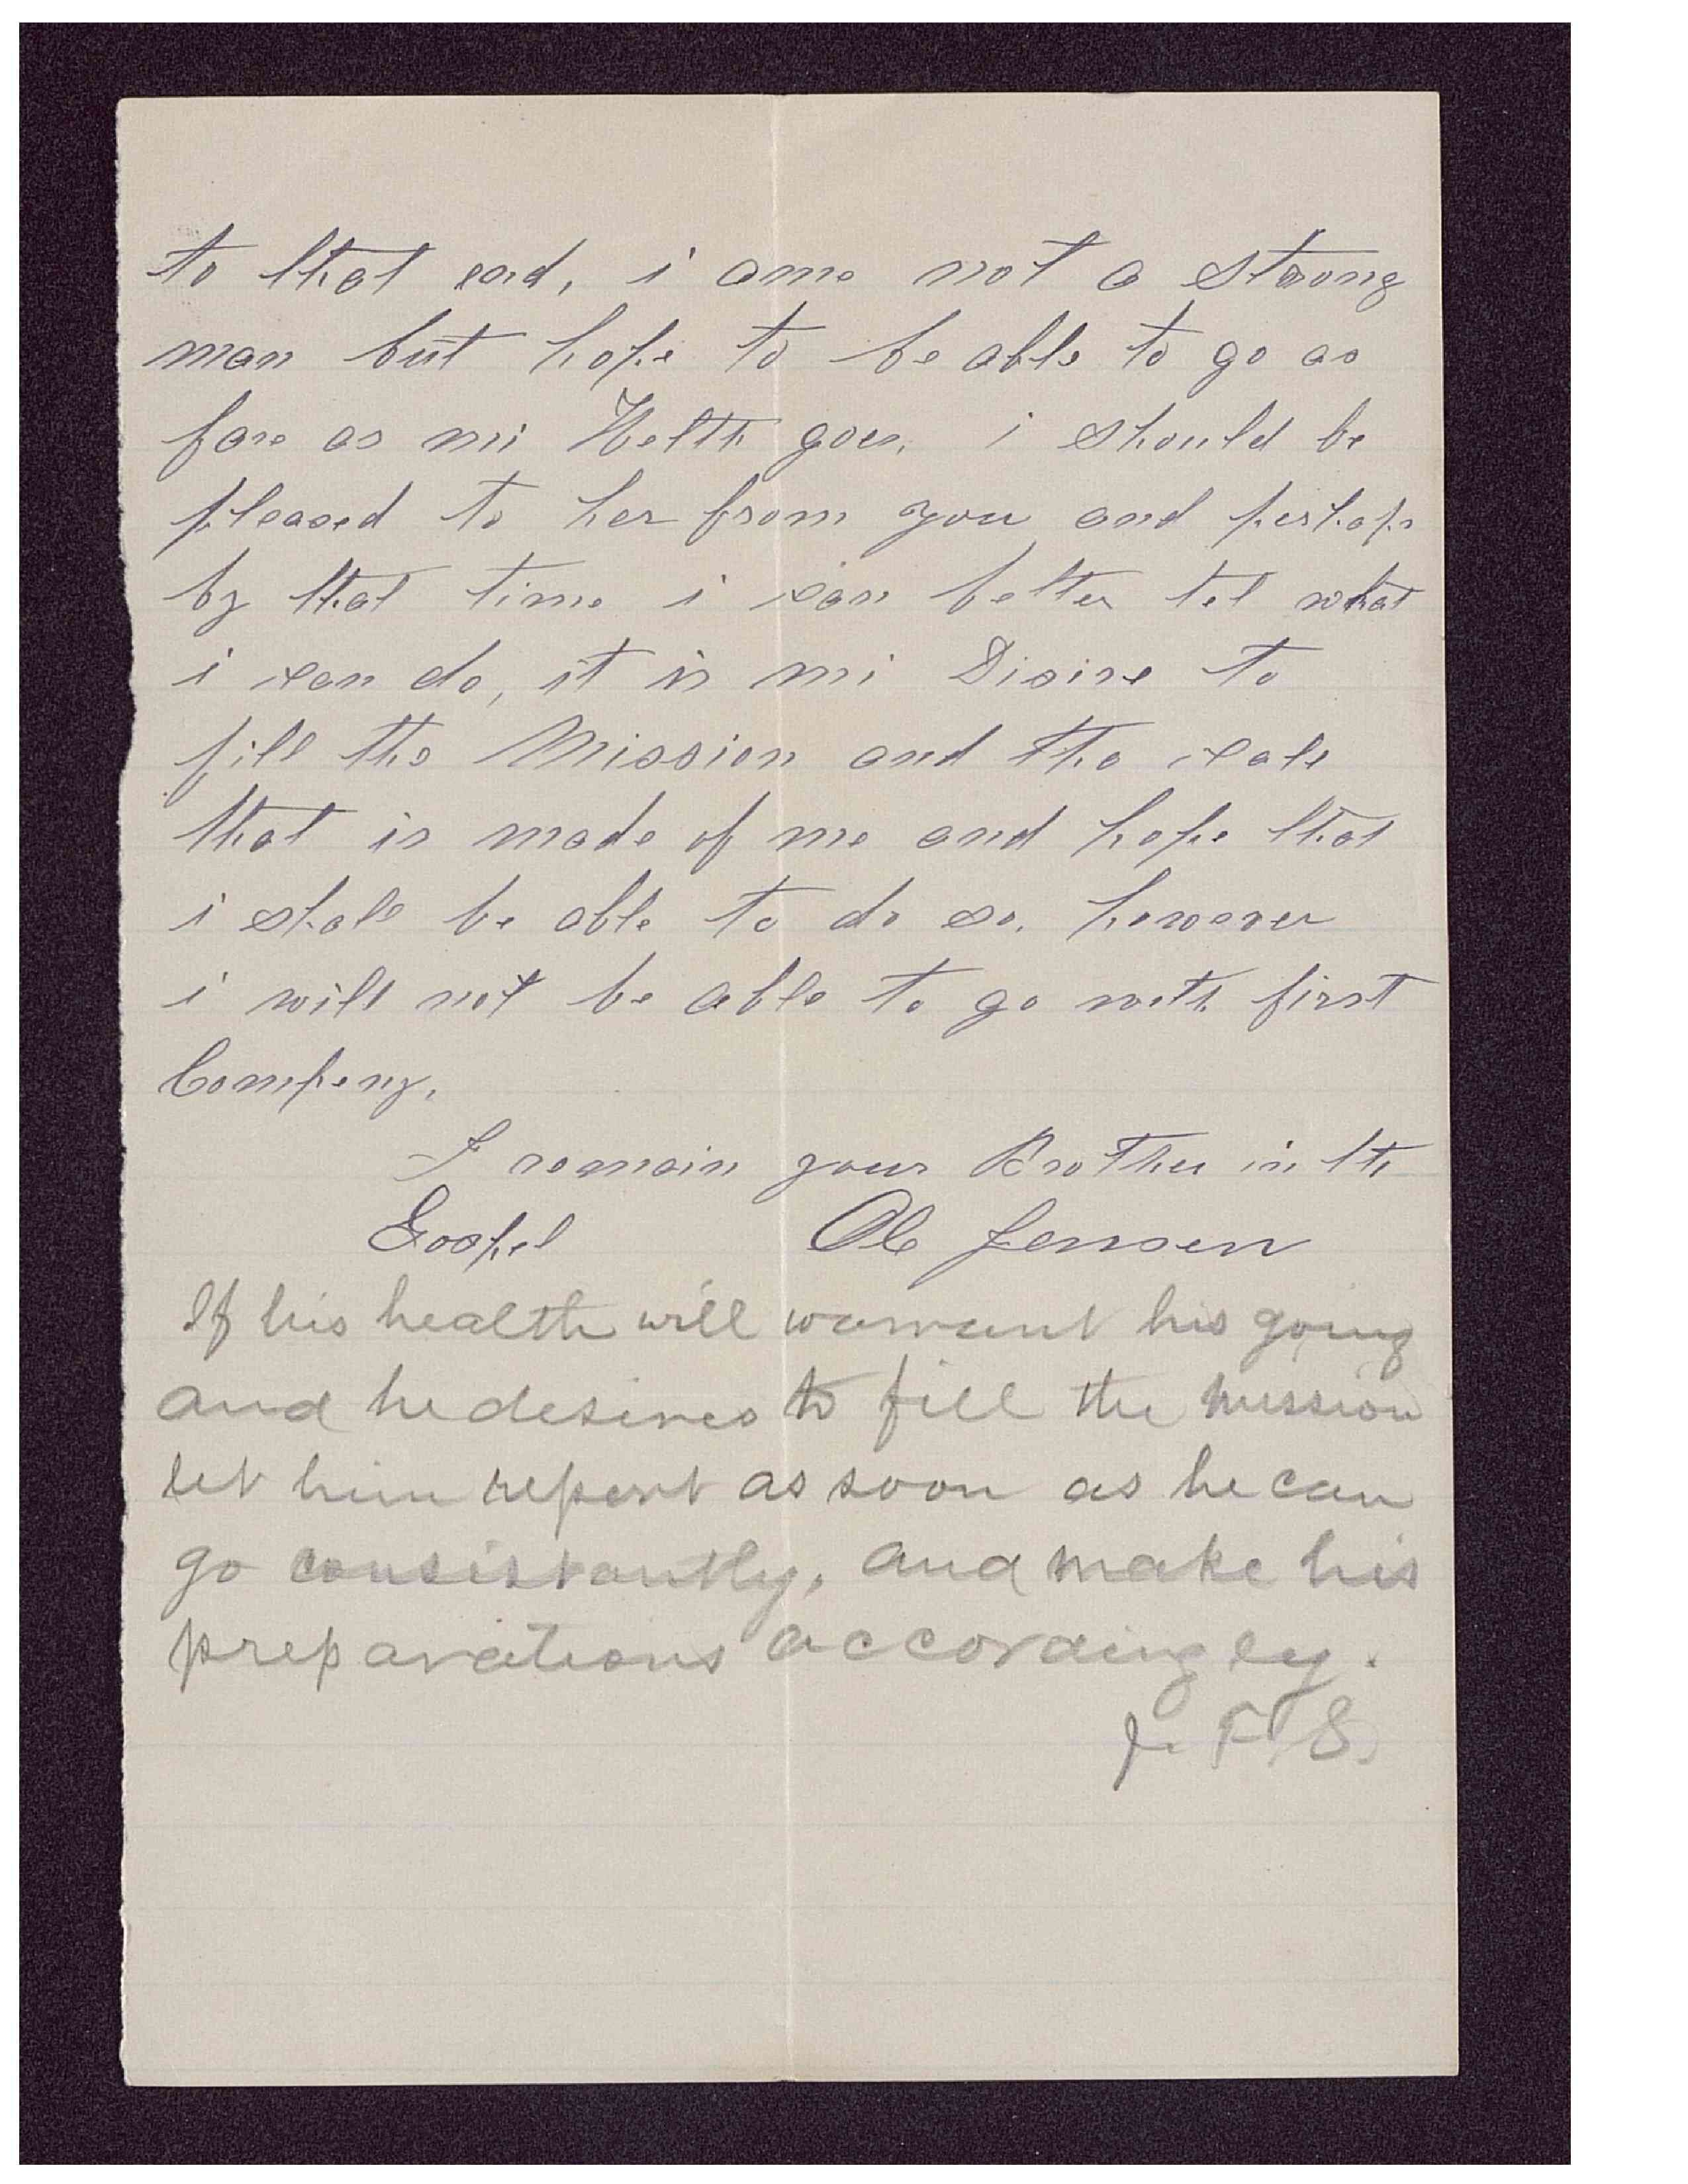 to that end, i ame not a strong
man but hope to be able to go as
fare as mi Helth goes, i should be
pleased to her from you and perhaps
by that time i can better tel what
i can do, it is mi Disire to
fill the Mission and the cale
that is made of me and hope that
i shale be able to do so. however
i will not be able to go with first
Compeny,
I remain your Brother in the
Gospel Ole Jensen
If his health will warrant his going
and he desires to fill the mission
let him report as soon as he can
go consistantly, and make his
preparations accordingly.
J. F. S.